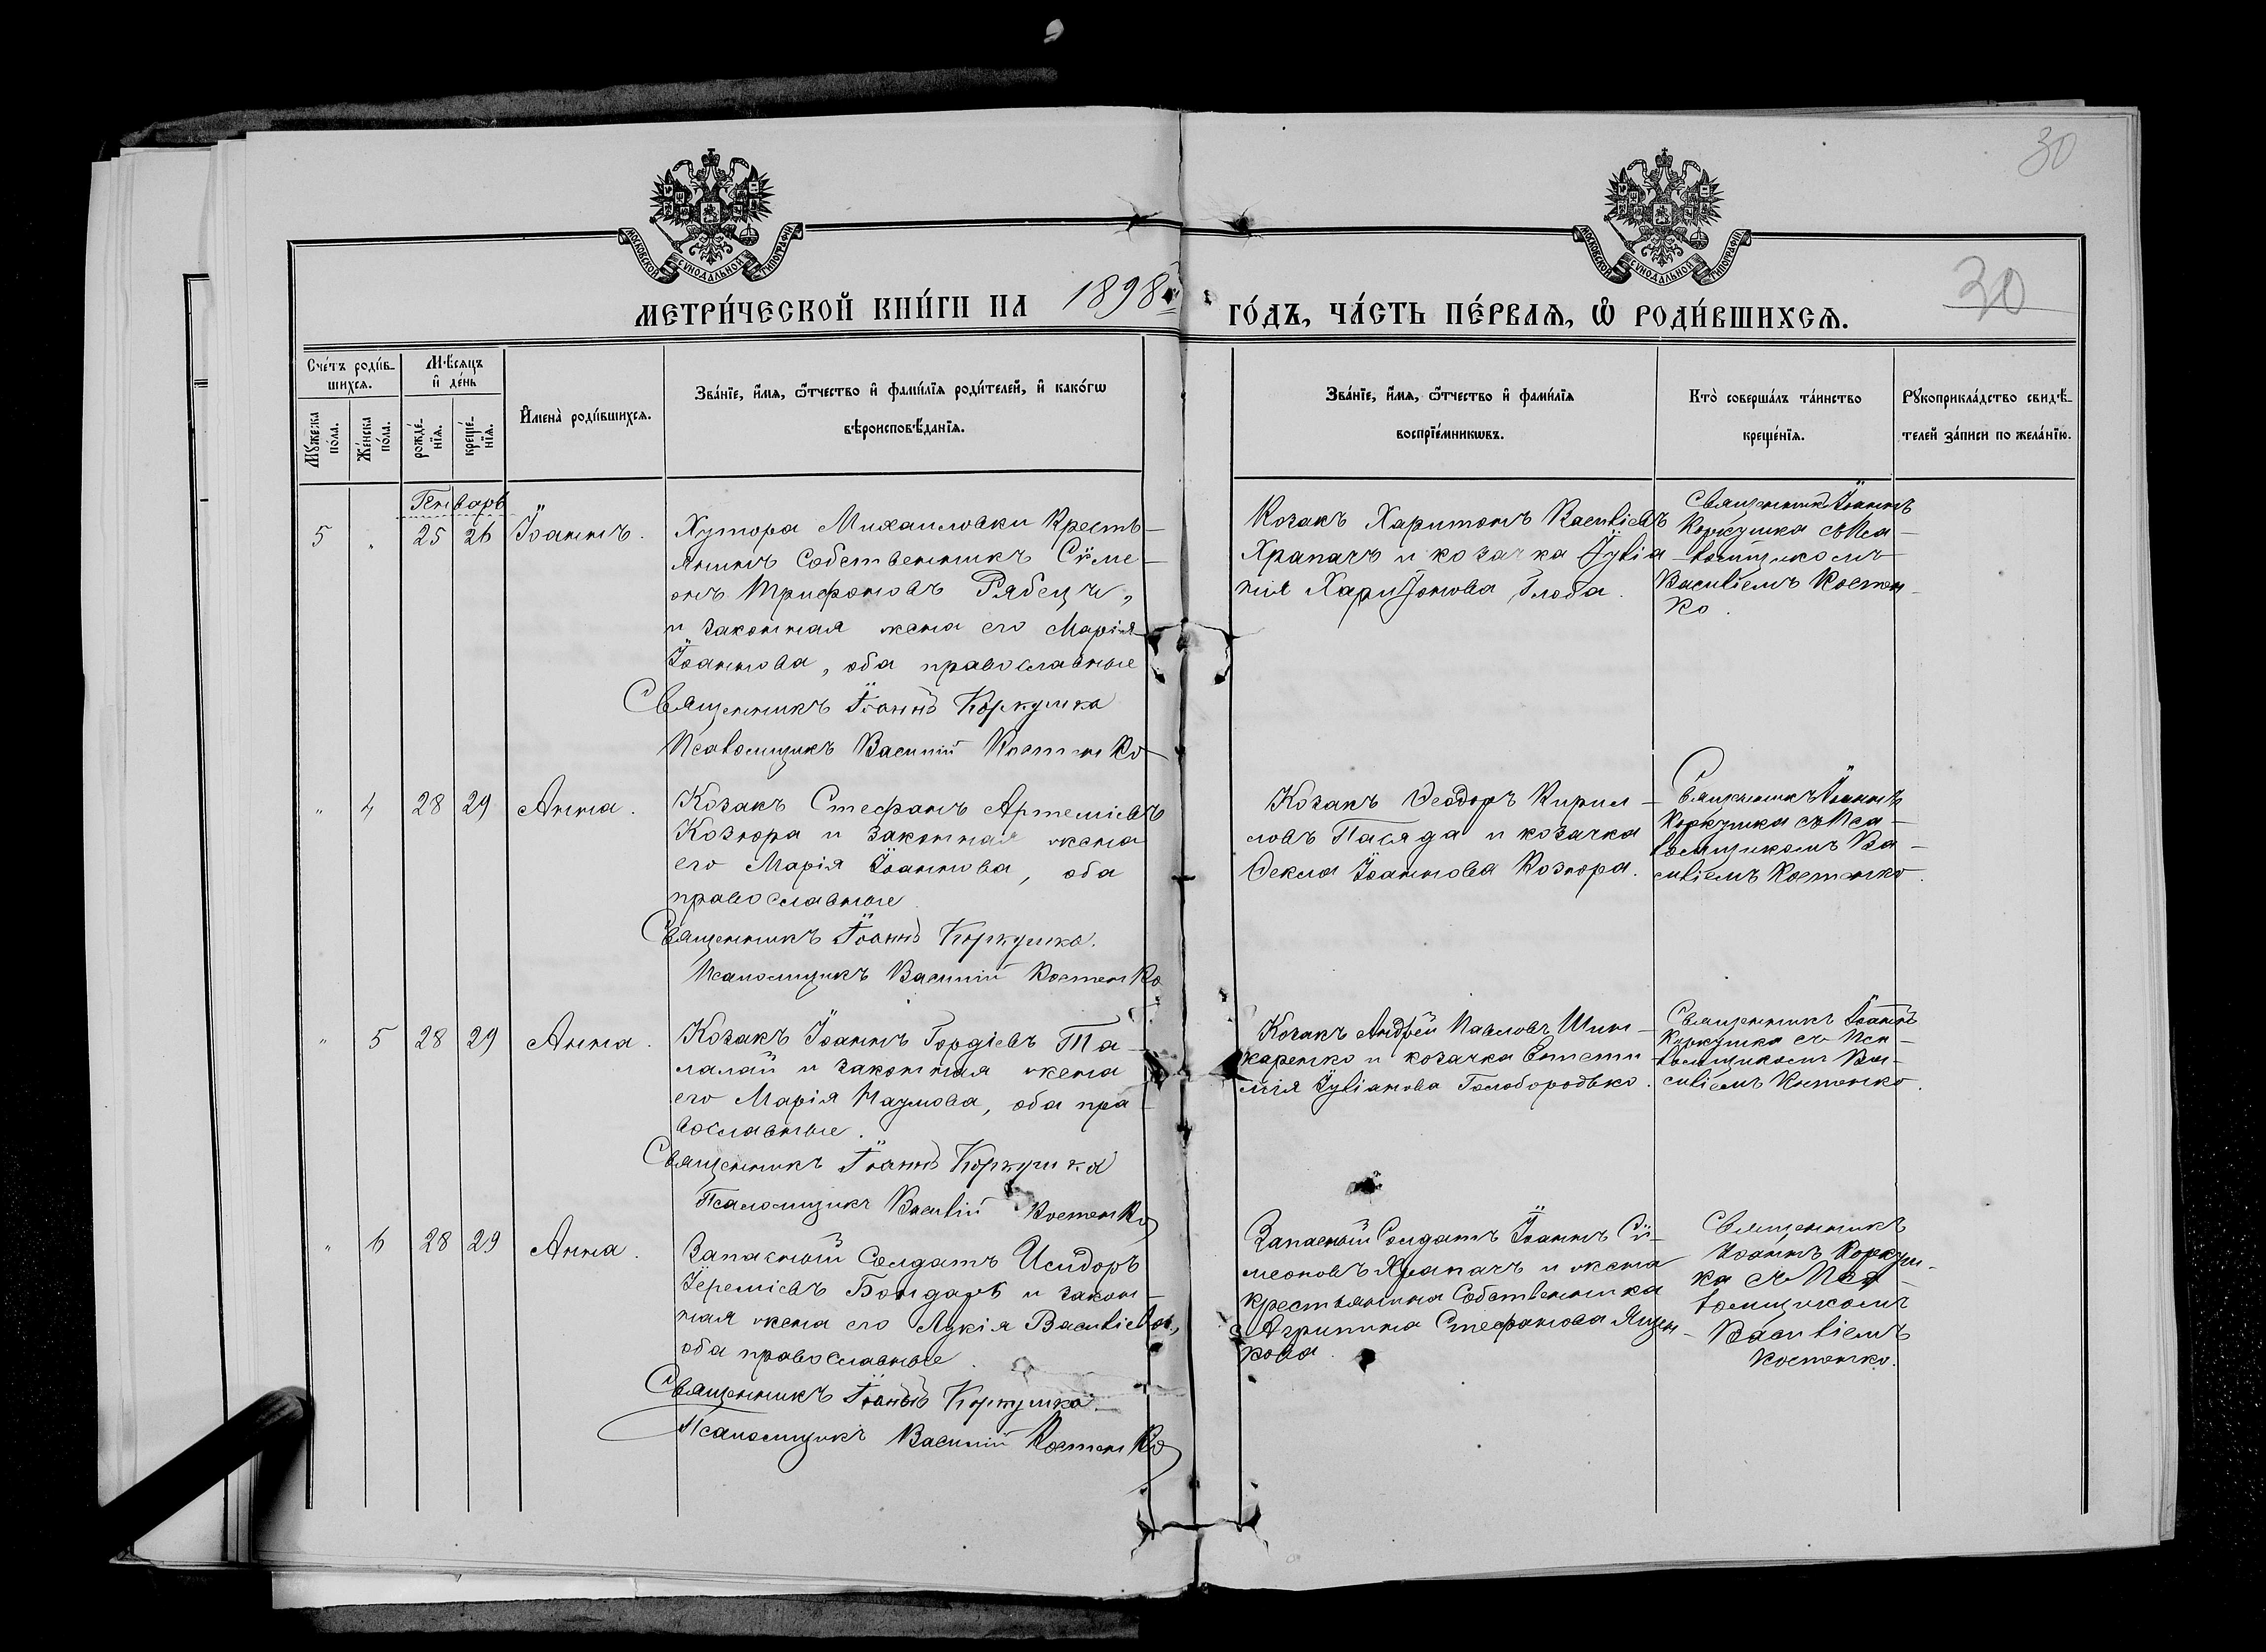 30
МОСКОВСКОЙ СѴНОДАЛЬНОЙ ТИПОГРАФІИ
МОСКОВСКОЙ СѴНОДАЛЬНОЙ ТИПОГРАФІИ
МЕТРИ́ЧЕСКОЙ КНИ́ГИ НА 1898
ГО́ДЪ, ЧА́СТЬ ПЕ́РВАѦ, Ѡ҆ РОДИ́ВШИХСѦ.
30
Сче́тъ роди́в-
шихся.
Мѣ́сяцъ
и҆ де́нь
Мꙋ́жеска
по́ла.
Же́нска
по́ла.
рожде́-
нїя.
креще́-
нїя.
И҆мена̀ роди́вшихся.
Зва́нїе, и҆́мѧ, ѻ҆́тчество и҆ фами́лїѧ роди́телей, и҆ како́гѡ
вѣроисповѣ́данїѧ.
Зва́нїе, и҆́мѧ, ѻ҆́тчество и҆ фами́лїѧ
воспрїе́мникѡвъ.
Кто̀ соверша́лъ та́инство
креще́нїѧ.
Рꙋкоприкла́дство свидѣ́-
телей за́писи по жела́нїю.
Генварь
5 " 25 26 Іоаннъ.
Хутора Михаиловки Кресть-
янинъ Собственникъ Сѵме-
онъ Трифоновъ Рябецъ,
и законная жена его Марія
Іоаннова, оба православные
Священникъ Іоаннъ Коркушка
Псаломщикъ Василій Костенко
Козакъ Харитонъ Васильевъ
Храпачъ и козачка Іуліа-
нія Харитонова Глоба.
Священникъ Іоаннъ
Коркушка съ Пса-
ломщикомъ
Василіемъ Костен-
ко.
" 4 28 29 Анна.
Козакъ Стефанъ Артеміевъ
Козюра и законная жена
его Марія Іоаннова, оба
православные
Священникъ Іоаннъ Коркушка.
Псаломщикъ Василій Костенко
Козакъ Ѳеодоръ Кирил-
ловъ Пасяда и козачка
Ѳекла Іоаннова Козюра.
Священникъ Іоаннъ
Коркушка съ Пса-
ломщикомъ Ва-
силіемъ Костенко.
" 5 28 29 Анна.
Козакъ Іоаннъ Гордіевъ Та-
лалай и законная жена
его Марія Наумова, оба пра-
вославные.
Священникъ Іоаннъ Коркушка
Псаломщикъ Василій Костенко
Козакъ Андрей Павловъ Шин-
каренко и козачка
Іуліанова Голобородько.
Священникъ Іоаннъ
Коркушка съ Пса-
ломщикомъ Ва-
силіемъ Костенко.
" 6 28 29 Анна.
Запасный Солдатъ Исидоръ
Іереміевъ Бондарь и закон-
ная жена его Лукія Васильева,
оба православные.
Священникъ Іоаннъ Коркушка.
Псаломщикъ Василій Костенко
Запасный Солдатъ Іоаннъ Сѵ-
меоновъ Храпачъ и жена
крестьянина Собственника
Агрипина Стефанова Ящен-
кова.
Священникъ
Іоаннъ Коркуш-
ка съ Пса-
ломщикомъ
Василіемъ
Костенко.